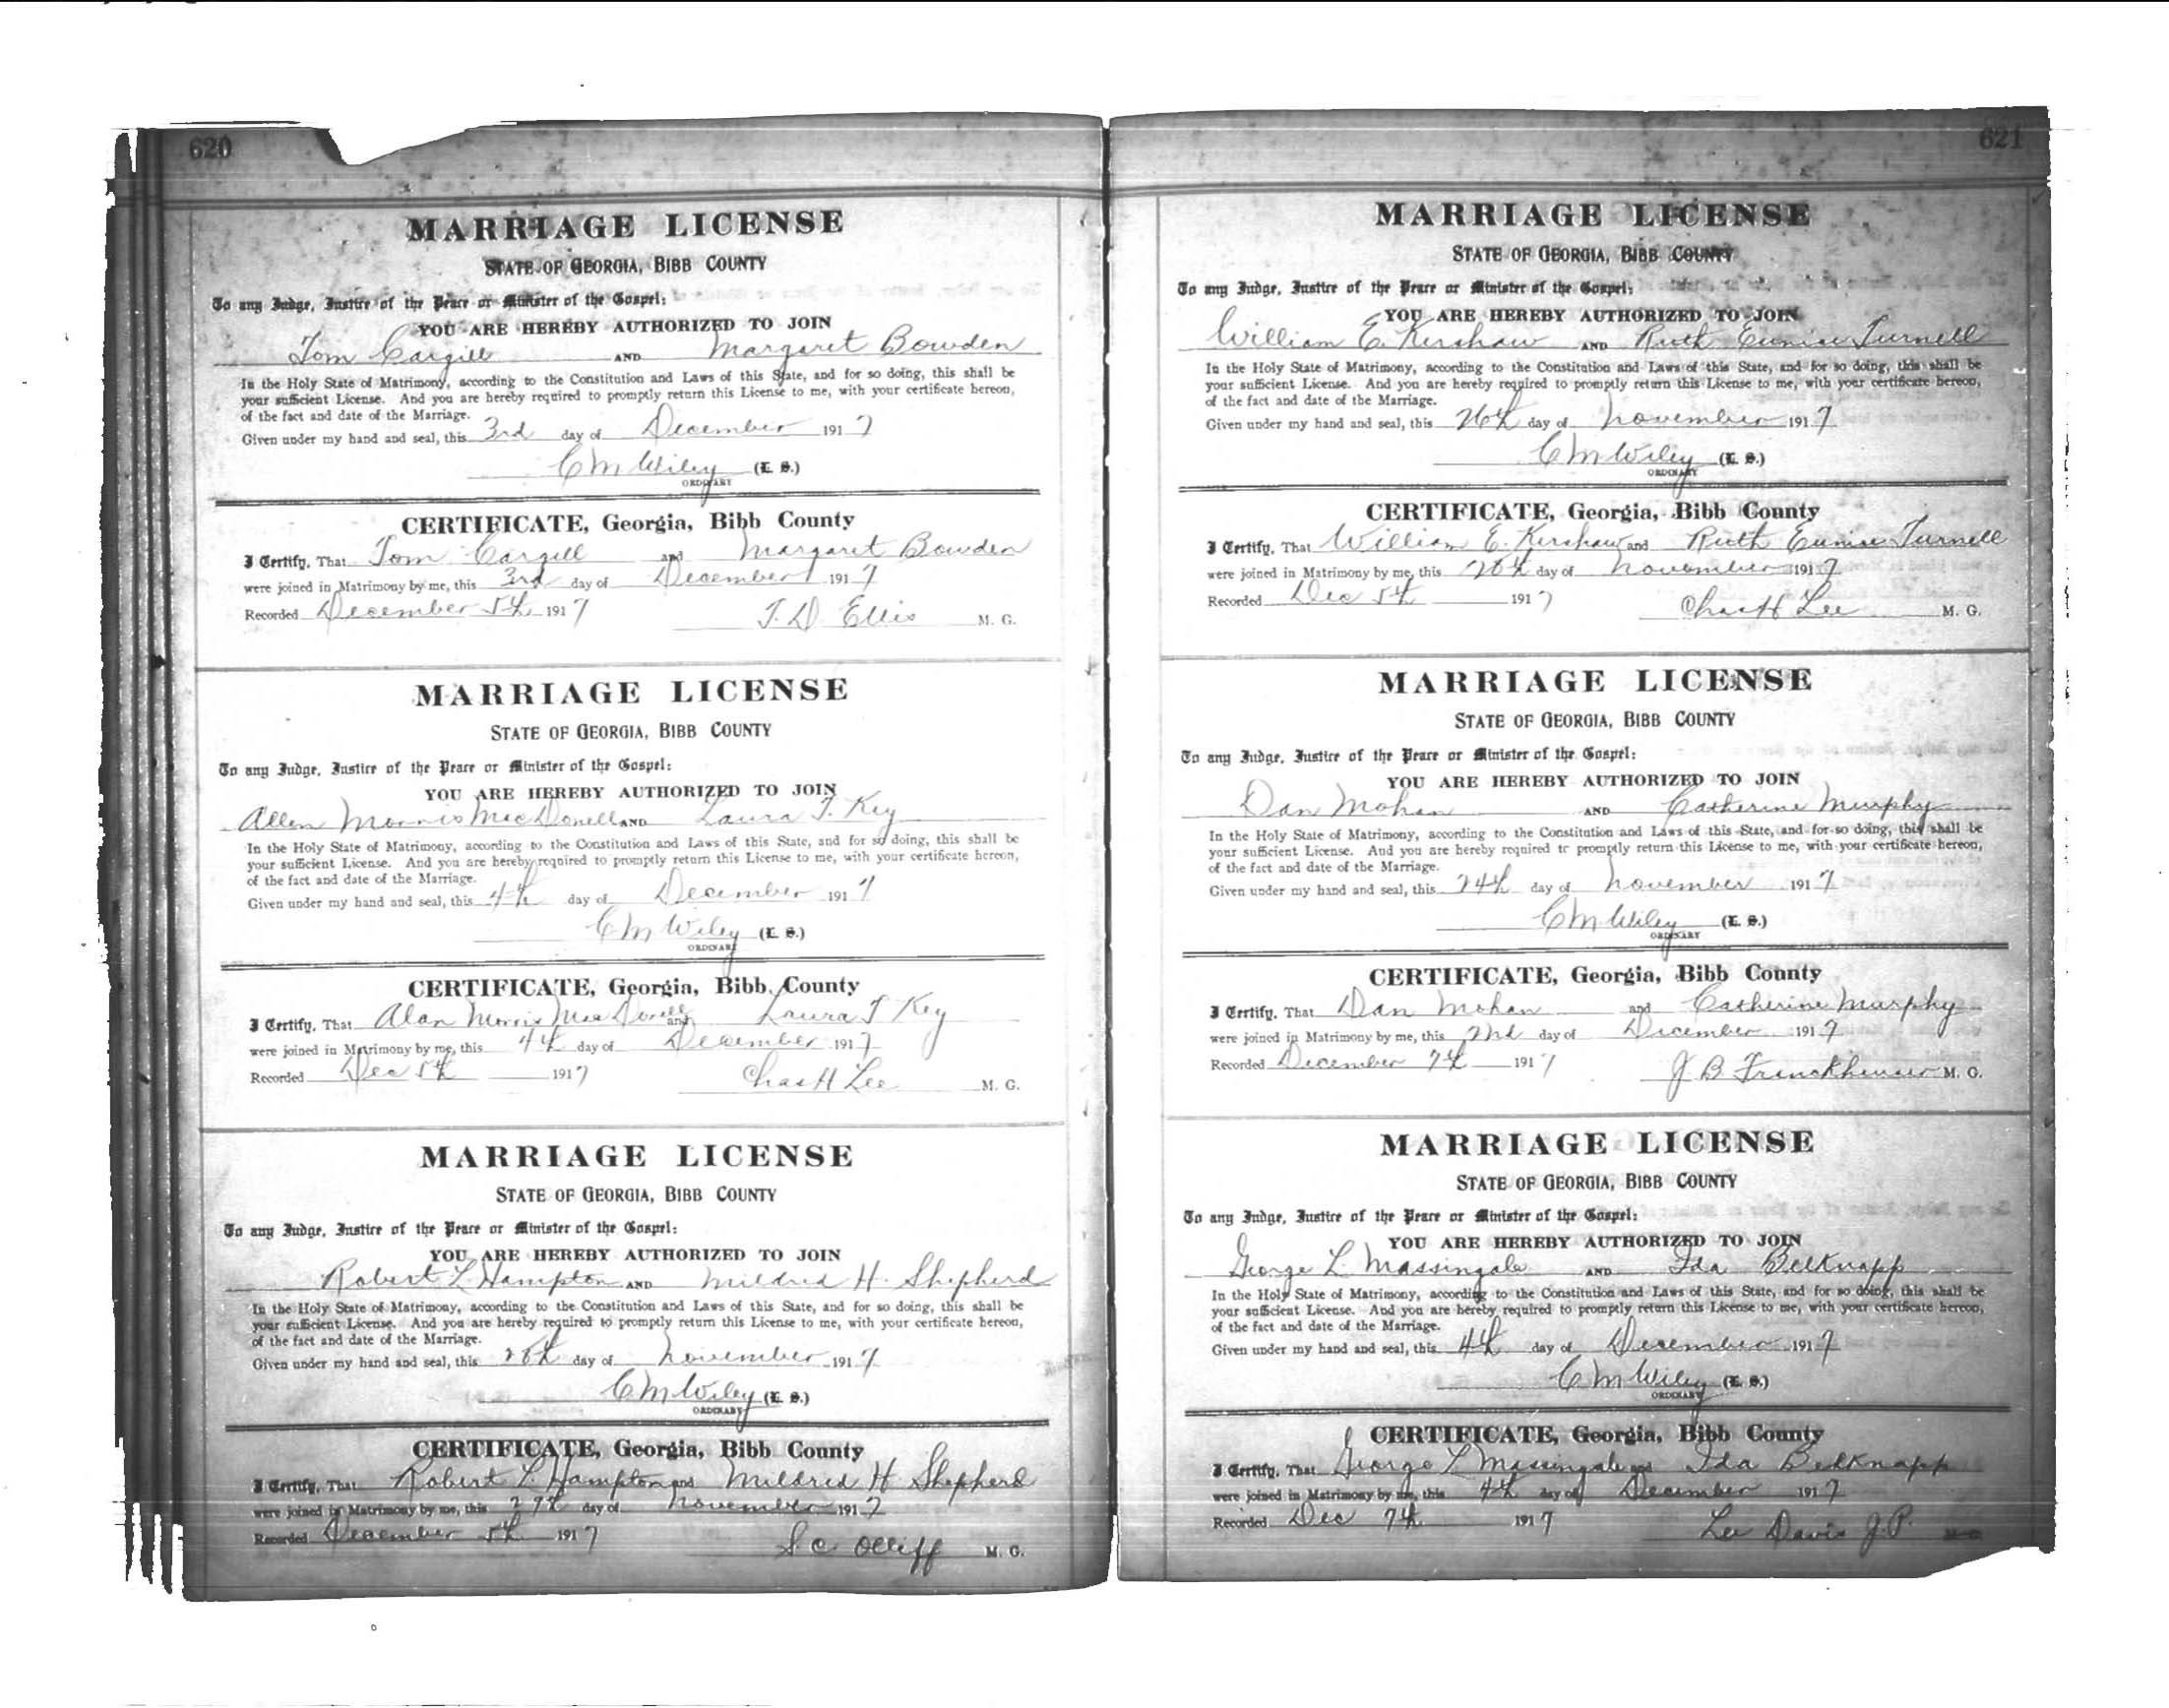 620
MARRIAGE LICENSE
STATE OF GEORGIA, BIBB COUNTY
To any Judge, Justice of the Peace or Minister of the Gospel:
YOU ARE HEREBY AUTHORIZED TO JOIN
Tom Cargill AND Margaret Bowden
In the Holy State of Matrimony, according to the Constitution and Laws of this State, and for so doing, this shall be
your sufficient License. And you are hereby required to promptly return this License to me, with your certificate hereon,
of the fact and date of the Marriage.
Given under my hand and seal, this 3rd day of December 1917
C M Wiley (L. S.)
ORDINARY
CERTIFICATE, Georgia, Bibb County
I Certify, That Tom Cargill and Margaret Bowden
were joined in Matrimony by me, this 3rd day of December 1917
Recorded December 5th 1917 T. D Ellis M. G.
MARRIAGE LICENSE
STATE OF GEORGIA, BIBB COUNTY
To any Judge, Justice of the Peace or Minister of the Gospel:
YOU ARE HEREBY AUTHORIZED TO JOIN
Allen Morris MacDonell AND Laura T. Key
In the Holy State of Matrimony, according to the Constitution and Laws of this State, and for so doing, this shall be
your sufficient License. And you are hereby required to promptly return this License to me, with your certificate hereon,
of the fact and date of the Marriage.
Given under my hand and seal, this 4th day of December 1917
C M Wiley (L. S.)
ORDINARY
CERTIFICATE, Georgia, Bibb County
I Certify, That Alan Morris MacDonell and Laura T Key
were joined in Matrimony by me, this 4th day of December 1917
Recorded Dec 5th 1917 Chas H Lee M. G.
MARRIAGE LICENSE
STATE OF GEORGIA, BIBB COUNTY
To any Judge, Justice of the Peace or Minister of the Gospel:
YOU ARE HEREBY AUTHORIZED TO JOIN
Robert L. Hampton AND Mildred H. Shepherd
In the Holy State of Matrimony, according to the Constitution and Laws of this State, and for so doing, this shall be
your sufficient License. And you are hereby required to promptly return this License to me, with your certificate hereon,
of the fact and date of the Marriage.
Given under my hand and seal, this 28th day of November 1917
C M Wiley (L. S.)
ORDINARY
CERTIFICATE, Georgia, Bibb County
I Certify, That Robert L. Hampton and Mildred H Shepherd
were joined in Matrimony by me, this 29th day of November 1917
Recorded December 5th 1917 S. C Olliff M. G.
621
MARRIAGE LICENSE
STATE OF GEORGIA, BIBB COUNTY
To any Judge, Justice of the Peace or Minister of the Gospel:
YOU ARE HEREBY AUTHORIZED TO JOIN
William E. Kershaw AND Ruth Eunice Turnell
In the Holy State of Matrimony, according to the Constitution and Laws of this State, and for so doing, this shall be
your sufficient License. And you are hereby required to promptly return this License to me, with your certificate hereon,
of the fact and date of the Marriage.
Given under my hand and seal, this 26th day of November 1917
C M Wiley (L. S.)
ORDINARY
CERTIFICATE, Georgia, Bibb County
I Certify, That William E. Kershaw and Ruth Eunice Turnell
were joined in Matrimony by me, this day of November 1917
Recorded Dec 5th 1917 Chas H Lee M. G.
MARRIAGE LICENSE
STATE OF GEORGIA, BIBB COUNTY
To any Judge, Justice of the Peace or Minister of the Gospel:
YOU ARE HEREBY AUTHORIZED TO JOIN
Dan Mohan AND Catherine Murphy
In the Holy State of Matrimony, according to the Constitution and Laws of this State, and for so doing, this shall be
your sufficient License. And you are hereby required to promptly return this License to me, with your certificate hereon,
of the fact and date of the Marriage.
Given under my hand and seal, this 24th day of November 1917
C M Wiley (L. S.)
ORDINARY
CERTIFICATE, Georgia, Bibb County
I Certify, That Dan Mohan and Catherine Murphy
were joined in Matrimony by me, this 2nd day of December 1917
Recorded December 7th 1917 J B M. G.
MARRIAGE LICENSE
STATE OF GEORGIA, BIBB COUNTY
To any Judge, Justice of the Peace or Minister of the Gospel:
YOU ARE HEREBY AUTHORIZED TO JOIN
George L. Massingale AND Ida Belknapp
In the Holy State of Matrimony, according to the Constitution and Laws of this State, and for so doing, this shall be
your sufficient License. And you are hereby required to promptly return this License to me, with your certificate hereon,
of the fact and date of the Marriage.
Given under my hand and seal, this 4th day of December 1917
C M Wiley (L. S.)
ORDINARY
CERTIFICATE, Georgia, Bibb County
I Certify, That George L Massingale and Ida Belknapp
were joined in Matrimony by me, this 4th day of December 1917
Recorded Dec 7th 1917 Lee Davis J. P. M. G.